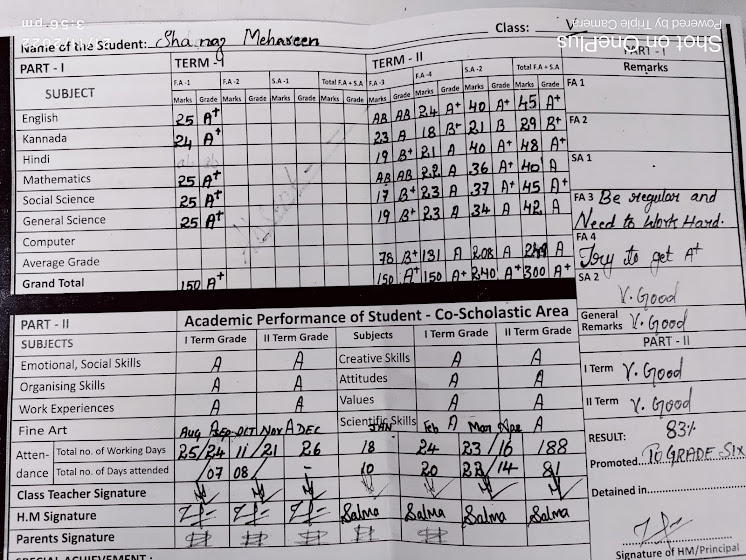 Shot on OnePlus
Powered by Triple Camera
Name of the Student: Shanaz Mehaseen Class: V
PART - I TERM - I TERM - II PART - I
SUBJECT F.A -1 F.A -2 S.A -1 Total F.A + S.A F.A -3 F.A -4 S.A -2 Total F.A + S.A Remarks
Marks Grade Marks Grade Marks Grade Marks Grade Marks Grade Marks Grade Marks Grade Marks Grade FA 1
English 25 A+ AB AB 24 A+ 40 A+ 45 A+
Kannada 24 A+ 23 A 18 B+ 21 B 29 B+ FA 2
Hindi ab ab 19 B+ 21 A 40 A+ 48 A+
Mathematics 25 A+ AB AB 22 A 36 A+ 40 A SA 1
Social Science 25 A+ 17 B+ 23 A 37 A+ 45 A+
General Science 25 A+ 19 B+ 23 A 34 A 42 A FA 3 Be regular and
Need to Work Hard.
Computer FA 4
Average Grade 78 B+ 131 A 208 A 249 A Try to get A+
Grand Total 150 A+ 150 A+ 150 A+ 240 A+ 300 A+ SA 2
V. Good
PART - II Academic Performance of Student - Co-Scholastic Area General Remarks V. Good
SUBJECTS I Term Grade II Term Grade Subjects I Term Grade II Term Grade PART - II
Emotional, Social Skills A A Creative Skills A A
Organising Skills A A Attitudes A A I Term V. Good
Work Experiences A A Values A A II Term V. Good
Fine Art A A Scientific Skills A A
AUG Sep OCT NOV DEC JAN Feb Mar Apr RESULT: 83%
Attendance Total no. of Working Days 25/24 11/21 26 18 24 23/16 188 Promoted TO GRADE-SIX
Total no. of Days attended /07 08/ - 10 20 22/14 81
Class Teacher Signature Detained in
H.M Signature Salma Salma Salma Salma
Parents Signature
SPECIAL ACHIEVEMENT : Signature of HM/Principal